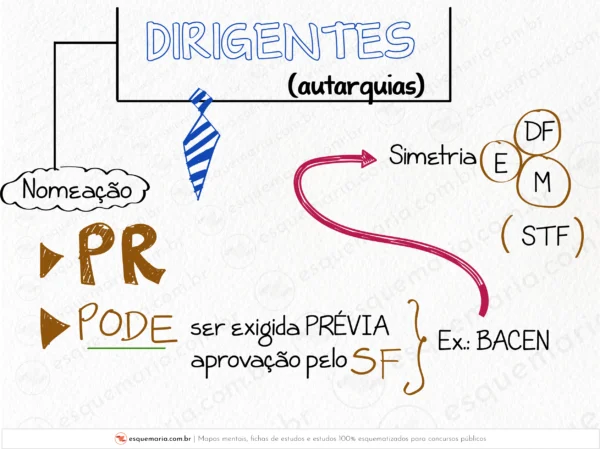 DIRIGENTES
(autarquias)
Nomeação
PR
PODE ser exigida PRÉVIA
aprovação pelo SF
Ex.: BACEN
Simetria E DF M
(STF)
esquemaria.com.br | Mapas mentais, fichas de estudos e estudos 100% esquematizados para concursos públicos
esquemaria.com.br